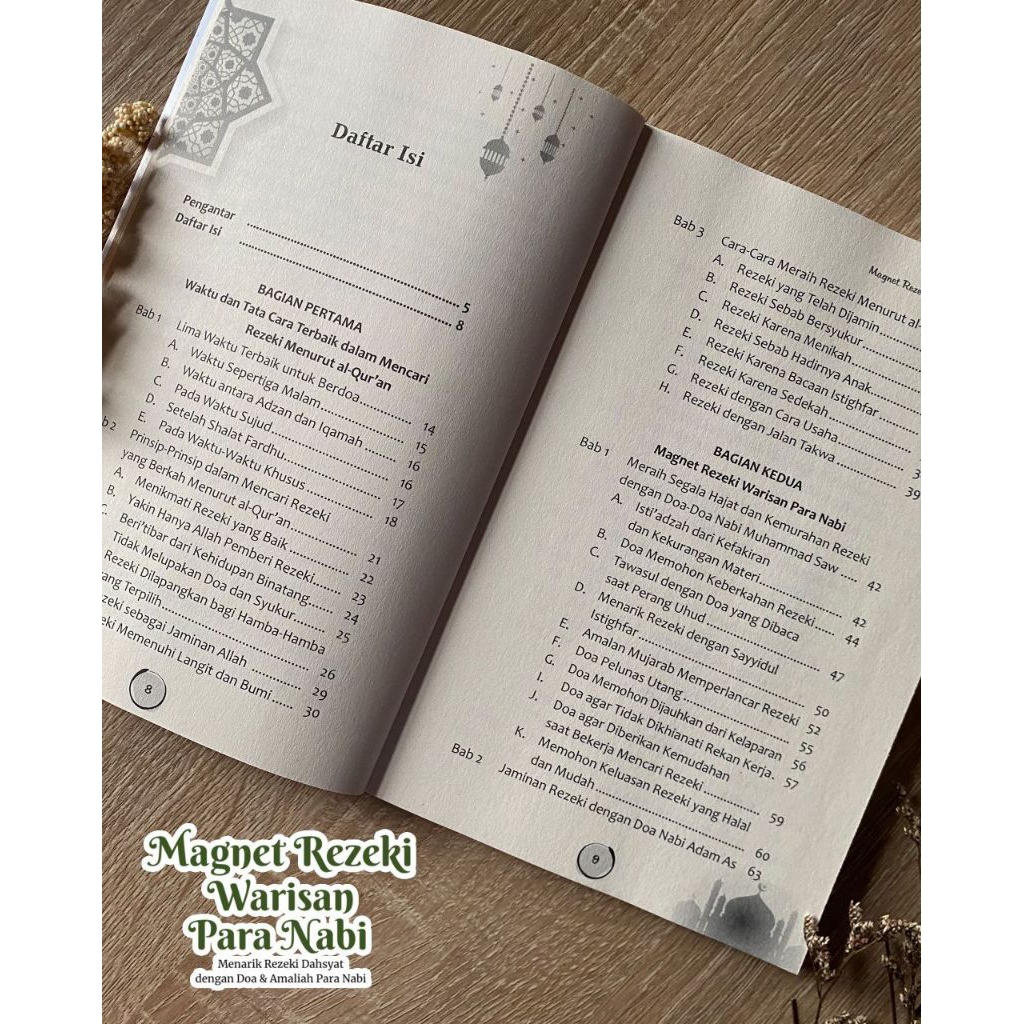 Daftar Isi
Pengantar ........ 5
Daftar Isi ........ 8
BAGIAN PERTAMA
Waktu dan Tata Cara Terbaik dalam Mencari
Rezeki Menurut al-Qur'an
Bab 1 Lima Waktu Terbaik untuk Berdoa ........ 14
A. Waktu Sepertiga Malam ........ 15
B. Waktu antara Adzan dan Iqamah ........ 16
C. Pada Waktu Sujud ........ 16
D. Setelah Shalat Fardhu ........ 17
E. Pada Waktu-Waktu Khusus ........ 18
b 2 Prinsip-Prinsip dalam Mencari Rezeki
yang Berkah Menurut al-Qur'an ........ 21
A. Menikmati Rezeki yang Baik ........ 22
B. Yakin Hanya Allah Pemberi Rezeki ........ 23
C. Beri'tibar dari Kehidupan Binatang ........ 24
Tidak Melupakan Doa dan Syukur ........ 25
Rezeki Dilapangkan bagi Hamba-Hamba
ang Terpilih ........ 26
zeki sebagai Jaminan Allah ........ 29
eki Memenuhi Langit dan Bumi ........ 30
8
Magnet Reze
Bab 3 Cara-Cara Meraih Rezeki Menurut al-
A. Rezeki yang Telah Dijamin ........
B. Rezeki Sebab Bersyukur ........
C. Rezeki Karena Menikah ........
D. Rezeki Sebab Hadirnya Anak ........
E. Rezeki Karena Bacaan Istighfar ........
F. Rezeki Karena Sedekah ........
G. Rezeki dengan Cara Usaha ........ 3
H. Rezeki dengan Jalan Takwa ........ 39
BAGIAN KEDUA
Magnet Rezeki Warisan Para Nabi
Bab 1 Meraih Segala Hajat dan Kemurahan Rezeki
dengan Doa-Doa Nabi Muhammad Saw ..... 42
A. Isti'adzah dari Kefakiran
dan Kekurangan Materi ........ 42
B. Doa Memohon Keberkahan Rezeki ..... 44
C. Tawasul dengan Doa yang Dibaca
saat Perang Uhud ........ 47
D. Menarik Rezeki dengan Sayyidul
Istighfar ........ 50
E. Amalan Mujarab Memperlancar Rezeki 52
F. Doa Pelunas Utang ........ 55
G. Doa Memohon Dijauhkan dari Kelaparan 56
I. Doa agar Tidak Dikhianati Rekan Kerja. 57
J. Doa agar Diberikan Kemudahan
saat Bekerja Mencari Rezeki ........ 59
K. Memohon Keluasan Rezeki yang Halal
dan Mudah ........ 60
Bab 2 Jaminan Rezeki dengan Doa Nabi Adam As 63
9
Magnet Rezeki
Warisan
Para Nabi
Menarik Rezeki Dahsyat
dengan Doa & Amaliah Para Nabi